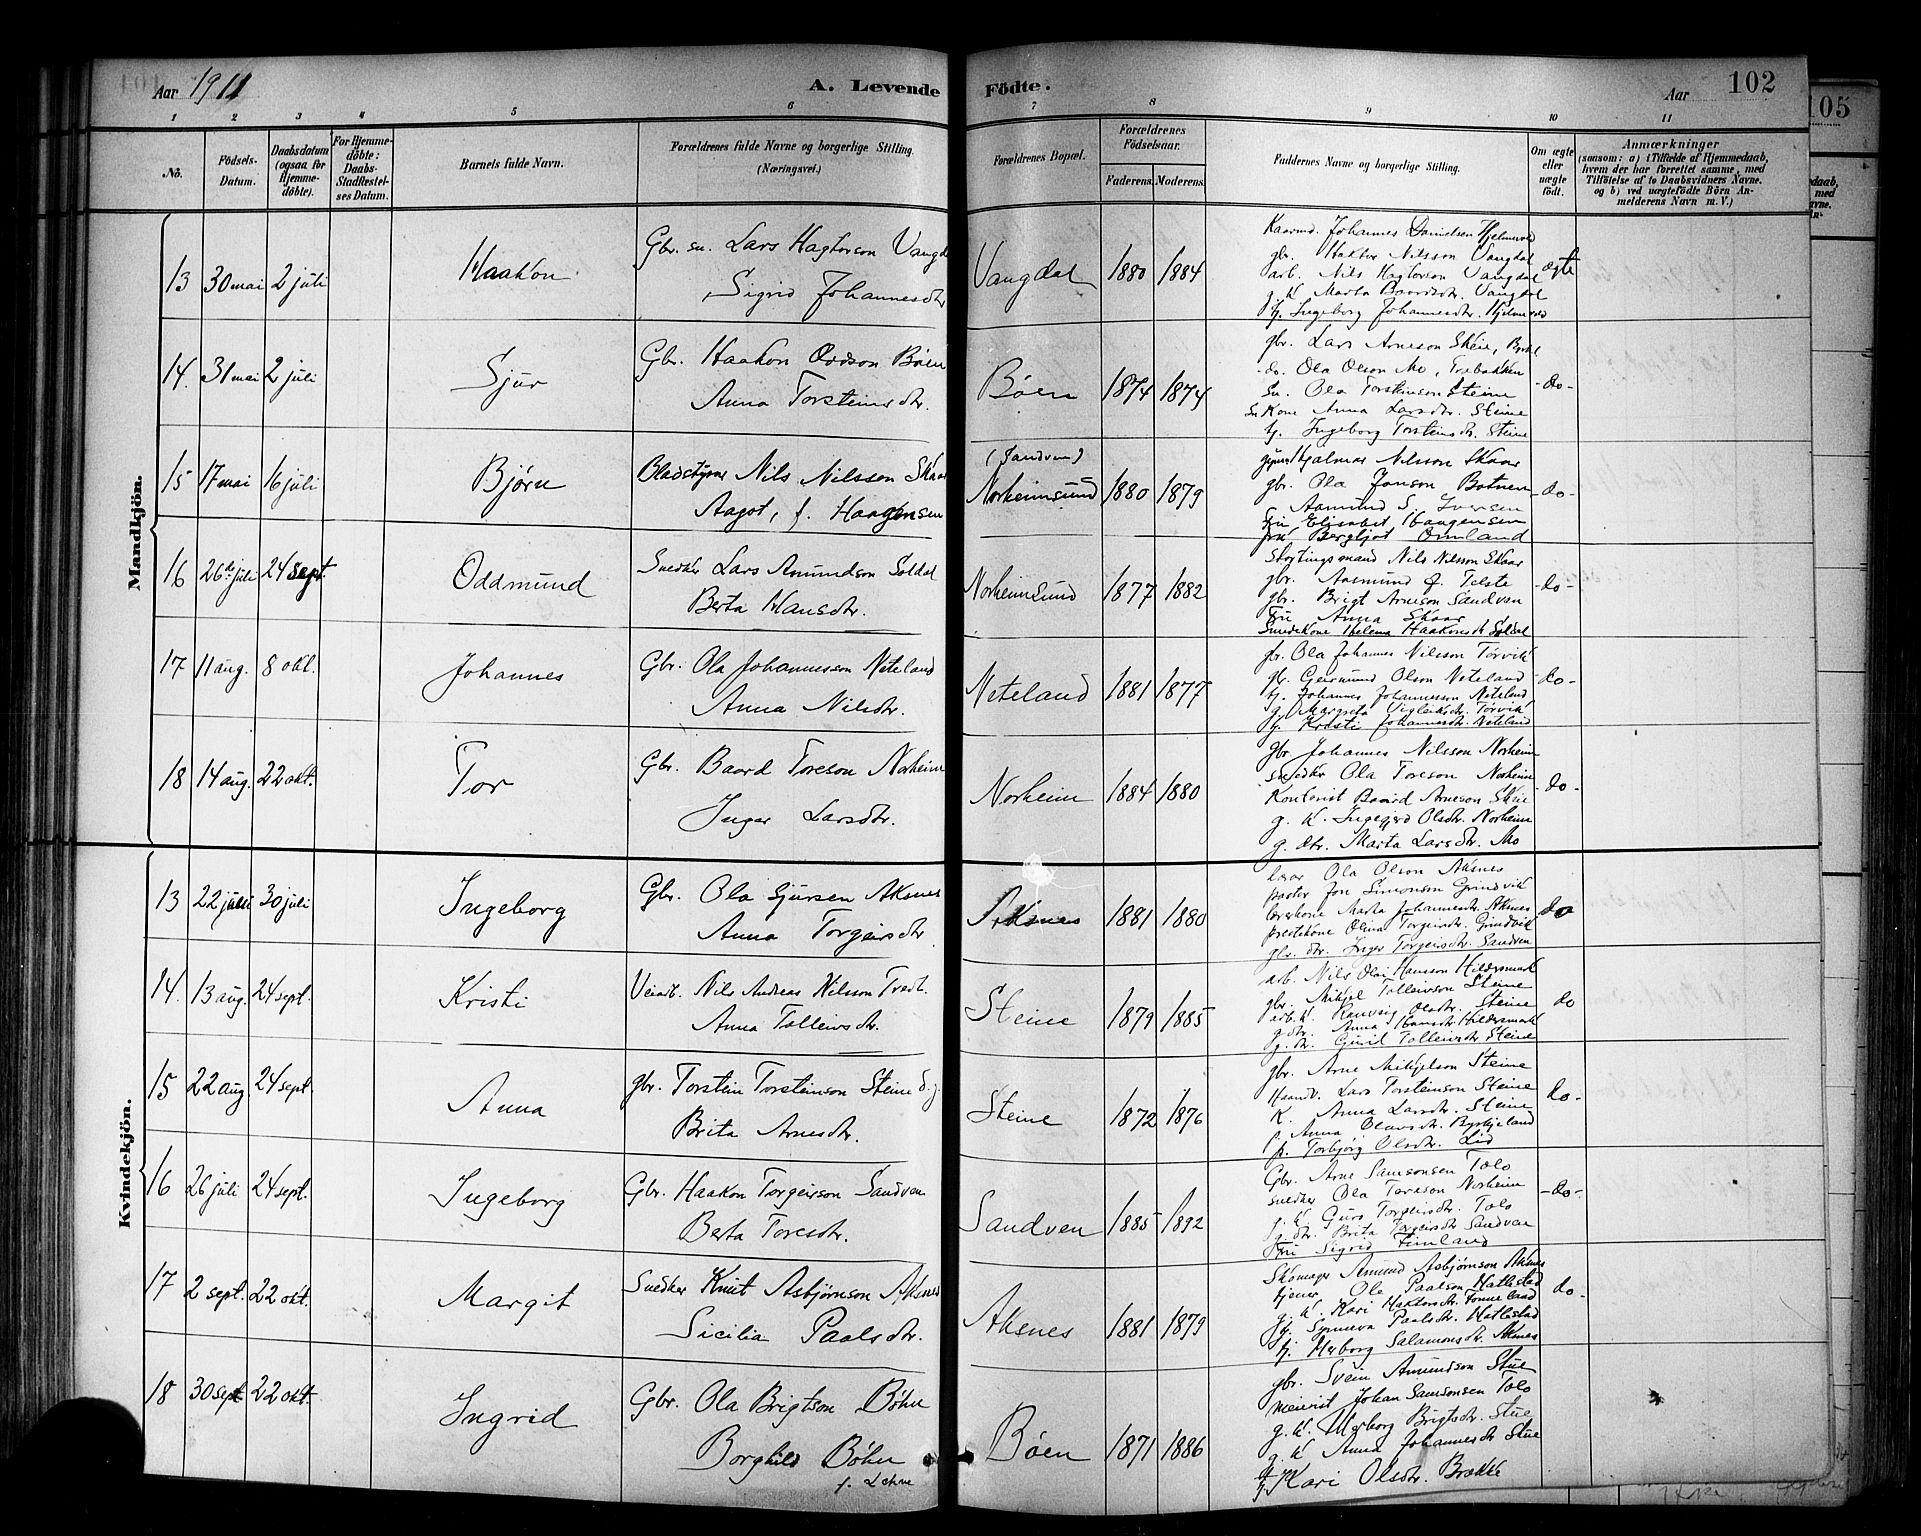 Aar 1911
A. Levende Födte.
Aar
102
105
1 2 3 4 5 6 7 8 9 10 11
No.
Födsels-Datum.
Daabsdatum (ogsaa for Hjemme-döbte).
For Hjemme-döbte: Daabs-Stadfæstel-ses Datum.
Barnets fulde Navn.
Forældrenes fulde Navne og borgerlige Stilling. (Næringsvei.)
Forældrenes Bopæl.
Forældrenes Födselsaar.
Faderens. Moderens.
Faddernes Navne og borgerlige Stilling.
Om ægte eller uægte födt.
Anmærkninger
(saasom: a) i Tilfælde af Hjemmedaab, hvem der har forrettet samme, med Tilföielse af to Daabsvidners Navne. og b) ved uægtefödte Börn An-melderens Navn m. V.)
Mandkjön.
13 30 mai 2 juli Haakon
Gbr. sn. Lars Hagtorson Vangdal
Sigrid Johannesdtr
Vangdal 1880 1884
Kaarmd. Johannes Danielsen Hjelmvold
gbr. Haktor Nilsson Vangdal
arb. Nils Hagtorson Vangdal
g. k. Marta Baardsdtr. Vangdal
tj. Ingeborg Johannesdtr. Hjelmvold
ægte
14. 31 mai 2 juli Sjur
Gbr. Haakon Oddson Böen
Anna Torsteinsdtr.
Böen 1874 1874
gbr. Lars Arneson Skeie,
do. Ola Olson Mo, Trabakken
Sn. Ola Torsteinson Steine
Sn Kone Anna Larsdtr. Steine
tj. Ingeborg Torsteinsdtr. Steine
-do-
15 17 mai 16 juli Bjørn
Bladstyrer Nils Nilsson Skaar
Aagot, f. Haagensen
(Sandven)
Norheimsund 1880 1879
Hjalmar Nilsson Skaar
gbr. Ola Jonson Botnen
Aamund S. Iversen
Fru Elisabet Haagensen
frk Bergljot Omland
-do-
16 26de juli 24 sept. Oddmund
Snedker Lars Amundson Soldal
Berta Hansdtr.
Norheimsund 1877 1882
Stortingsmand Nils Nilsson Skaar
gbr. Aasmund J. Telste
gbr. Brigt Arneson Sandven
Fru Anna Skaar
Smedkone Helena Haakonsdtr Soldal
-do-
17 11 aug. 8 okt. Johannes
Gbr. Ola Johannesson Neteland
Anna Nilsdtr.
Neteland 1881 1877
gbr. Ola Johannes Nilsson Tørvik
gb. Geirmund Olson Neteland
tj. Johannes Johannesson Neteland
g. Margreta Vigleiksdtr. Tørvik
tj. Kristi Johannesdtr. Neteland
-do-
18 14 aug. 22 okt. Tor
Gbr. Baard Toreson Norheim
Inger Larsdtr.
Norheim 1884 1880
gbr. Johannes Nilsson Norheim
snedker Ola Toreson Norheim
Kontorist Baard Arneson Skeie
g. k. Ingegjerd Olsdtr. Norheim
g. dtr. Marta Larsdtr. Mo
-do-
Kvindekjön.
13 22 juni 30 juli Ingeborg
Gbr. Ola Sjursen Aksnes
Anna Torgeirsdtr.
Aksnes 1881 1880
lærer Ola Olson Aksnes
pastor Jon Simonson Grindvik
lærerkone Marta Johannesdtr. Aksnes
prestekone Olina Torgeirsdtr. Grindvik
gb. dtr. Inger Torgeirsdtr. Sandven
do
14. 13 aug. 24 sept. Kristi
Veiarb. Nils Andreas Nilsson Tvedt.
Anna Tolleivsdtr.
Steine 1879 1885
arb. Nils Olai Hansson Hildersmark
gbr. Mikjel Tolleivson Steine
arb. k. Ranveig Olsdtr. Steine
g. dtr. Anna Hansdtr Hildersmark
g. dtr. Guril Tolleivsdtr Steine
do
15 22 aug. 24 sept. Anna
gbr. Torstein Torsteinson Steine d. y.
Brita Arnesdtr.
Steine 1872 1876
gbr. Arne Mikjelson Steine
Haandv. Lars Torsteinson Steine
K. Anna Larsdtr. Steine
p. Anna Olavsdtr. Byrkjeland
p. Torbjörg Olsdtr. Lid
do-
16 26 juli 24 sept. Ingeborg
Gbr. Haakon Torgeirson Sandven
Berta Toresdtr.
Sandven 1885 1892
Gbr. Arne Samsonsen Tolo
snedker Ola Toreson Norheim
g. k. Guro Torgeirsdtr. Tolo
g. dtr. Brita Torgeirsdtr Sandven
Fru Sigrid Finland
-do-
17 2 sept. 22 okt. Margit
Snedker Knut Asbjørnson Aksnes
Sicilia Paalsdtr.
Aksnes 1881 1879
Skomager Amund Asbjørnson Aksnes
tjener Ole Paalson Hatlestad
g. k. Kari Haktorsdtr.
tj. Synneva Paalsdtr. Hatlestad
tj. Herborg Salamonsdtr. Aksnes
do-
18 30 sept 22 okt. Ingrid
Gbr. Ola Brigtson Böhn
Borghild Böhn
f. Lehne
Böen 1871 1886
gbr. Svein Amundson Stue
meierist Johan Samsonsen Tolo
g. k. Herborg Brigtsdtr. Stue
g. k Anna Johannesdtr Stue
tj. Kari Olsdtr. Brække